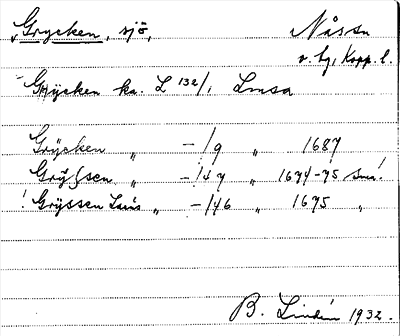 Grycken, sjö, Nås sn
v. bg, Kopp. l.
Grÿcken ka. L 132/1 Lmsa
Grÿcken " -/9 " 1687
Grÿssen " -/47 " 1674-75 små!
! Grÿssen Siös " -/46 " 1675 "
B. Lindén 1932.